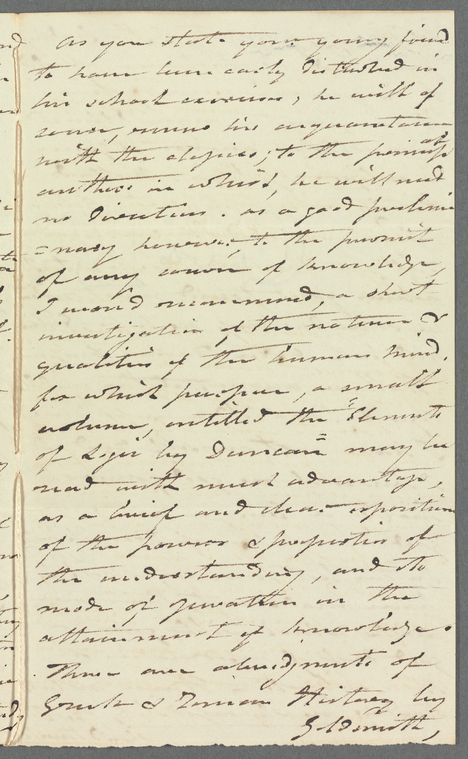 As you state your young friend
to have been early instructed in
his school exercises, he will of
course, renew his acquaintance
with the classics; to the principal
authors in which, he will need
no direction. As a good prelimi
=nary however, to the pursuit
of any course of knowledge,
I would recommend, a short
investigation of the nature &
qualities of the human mind.
for which purpose, a small
volume, entitled the "Elements
of Logic by Duncan" may be
read with much advantage,
as a brief and clear exposition
of the powers & properties of
the understanding, and its
mode of operation in the
attainment of knowledge.
There are abridgments of
Greek & Roman History by
Goldsmith,